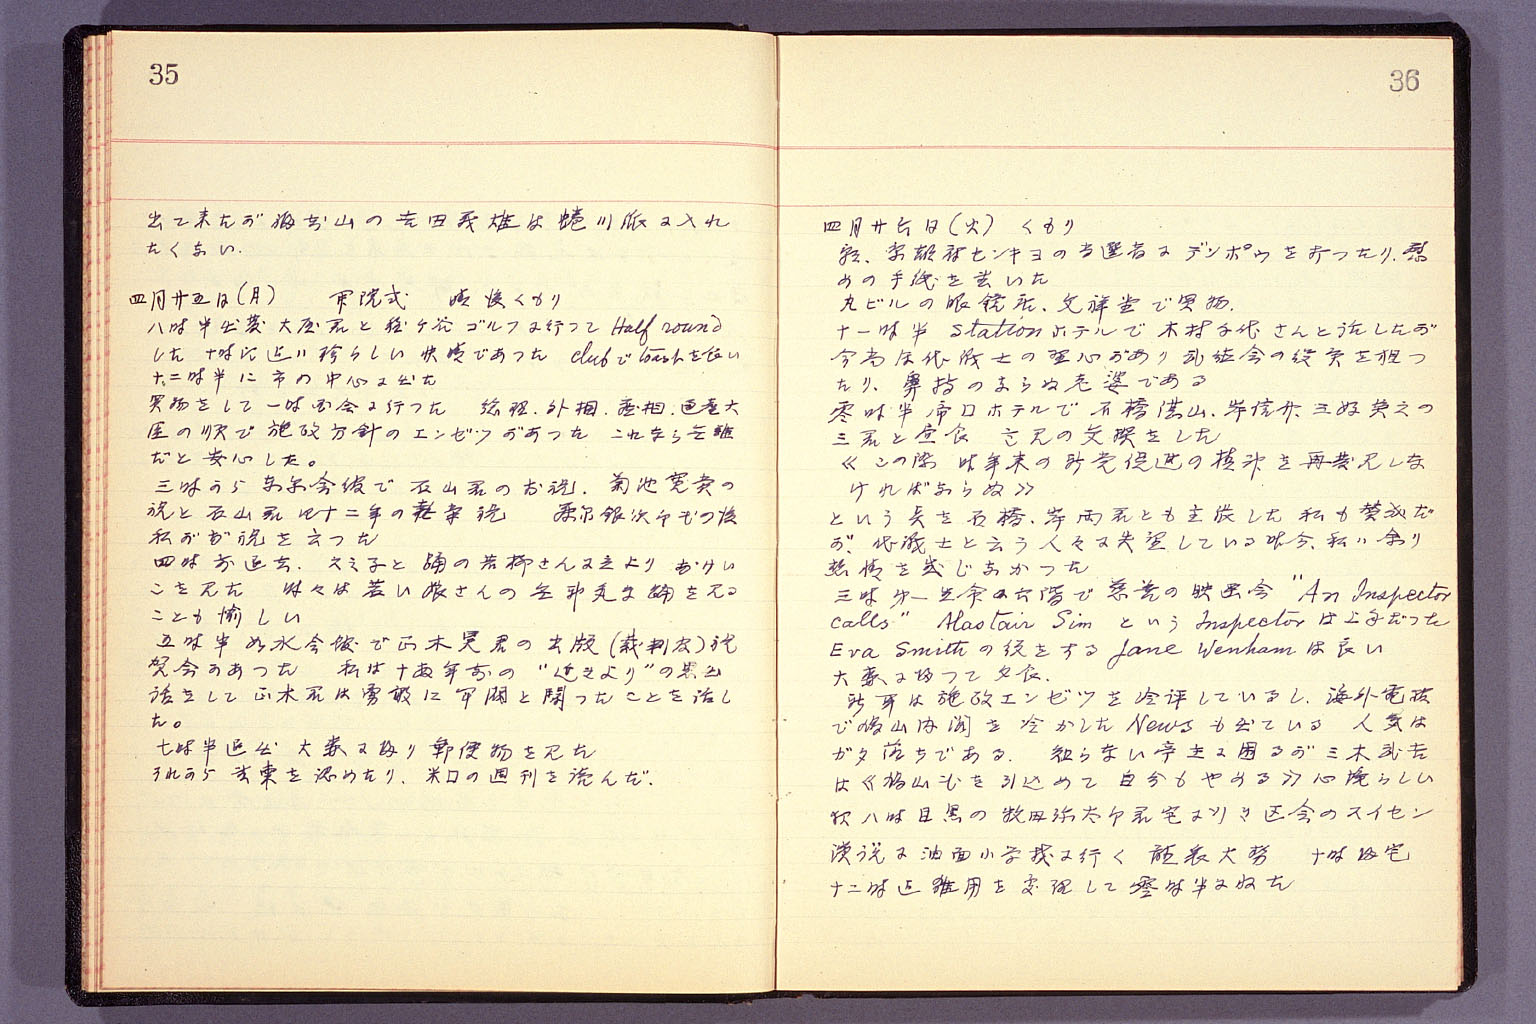 35
出て来たが海部山の吉田義雄は蜷川派に入れ
たくない.
四月廿五日(月) 開院式 晴後くもり
八時半出発 大原君と程ヶ谷ゴルフに行って Half round
した 十時に近い珍らしい快晴であった clubで toastを食い
十二時半に市の中心に出た
買物をして一時 会に行った 総理.外相.蔵相.通産大
臣の順で施政方針のエンゼツがあった これなら無難
だと安心した。
三時から東京会館で石山君のお祝.菊池寛賞の
祝と石山君 十二年の 祝 銀次郎 の後
私が 祝を云った
四時前退去. ミ子と踊の若柳さんに立より おけい
こを見た 時々は若い娘さんの 踊を見る
ことも愉しい
五時半如水会館で正木昊君の出版(裁判官)祝
賀会があった 私は十 年前の "近きより"の思出
話をして正木君は勇敢に軍閥と闘ったことを話し
た。
七時半退出 大森に帰り郵便物を見た
それから 束を認めたり、米国の週刊を読んだ.
36
四月廿六日(火) くもり
朝、 センキョの当選者にデンポウを打ったり.慰
めの手紙を書いた
丸ビルの眼鏡店.文祥堂で買物.
十一時半 stationホテルで木村 代さんと話したが
今尚ほ代議士の野心があり 会の役員を狙っ
たり、鼻持のならぬ老婆である
零時半帝国ホテルで石橋湛山.岸信介.三好英之の
三君と昼食 意見の交換をした
《この際 昨年来の新党促進の精神を再発見しな
ければならぬ》
という点を石橋.岸両君とも主張した 私も賛成だ
が、代議士と云う人々に失望している昨今、私は余り
熱情を感じなかった
三時 第一生命の六階で 映画会 "An Inspector
calls" Alastair Sim という Inspectorは上手だった
Eva Smithの役をする Jane Wenhamは良い
大森に帰って夕食.
新聞は施政エンゼツを冷評しているし.海外電報
で鳩山内閣を冷かした Newsも出ている 人気は
ガタ落ちである. 知らない亭主に困るが三木武吉
は《鳩山 を引込めて自分もやめる》心境らしい
夜八時目黒の牧田弥太郎君宅に行き区会のスイセン
演説に油面小学校に行く 聴衆大勢 十時帰宅
十二時迄雑用を処理して零時半に寝た